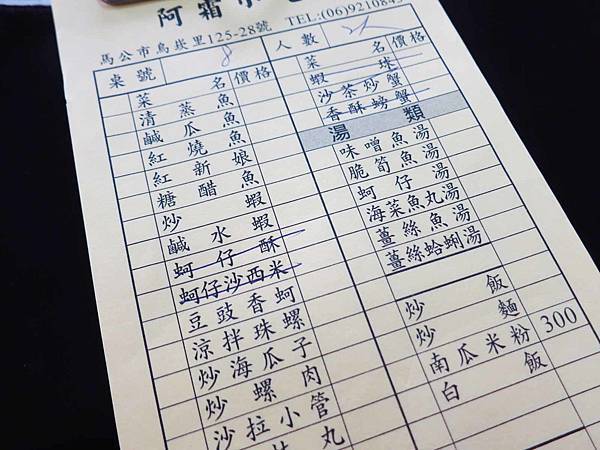 阿霜
馬公市烏崁里125-28號 TEL:(06)921084
桌號 8 人數
菜名 價格
清蒸魚
鹹瓜魚
紅燒魚
紅新娘
糖醋魚
炒蝦
鹹水蝦
蚵仔酥
蚵仔沙西米
豆豉香蚵
涼拌珠螺
炒海瓜子
炒螺肉
沙拉小管
丸
菜名 價格
蝦球
沙茶炒蟹
香酥螃蟹
湯類
味噌魚湯
脆筍魚湯
蚵仔湯
海菜魚丸湯
薑絲魚湯
薑絲蛤蜊湯
炒飯
炒麵
南瓜米粉 300
白飯